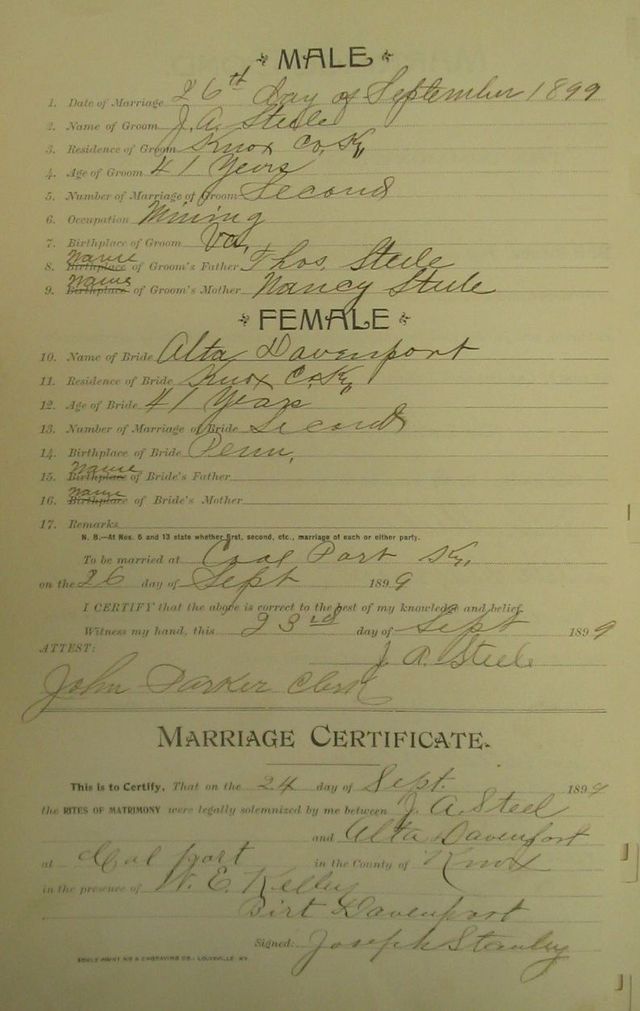 MALE
1. Date of Marriage 26th day of September 1899
2. Name of Groom J. A. Steele
3. Residence of Groom Knox Co. Ky,
4. Age of Groom 41 Years
5. Number of Marriage of Groom Second
6. Occupation Mining
7. Birthplace of Groom Va,
Name
8. Birthplace of Groom's Father Thos. Steele
Name
9. Birthplace of Groom's Mother Nancy Steele
FEMALE
10. Name of Bride Alta Davenport
11. Residence of Bride Knox Co Ky,
12. Age of Bride 41 Years
13. Number of Marriage of Bride Second
14. Birthplace of Bride Penn,
Name
15. Birthplace of Bride's Father
Name
16. Birthplace of Bride's Mother
17. Remarks
N. B.—At Nos. 5 and 13 state whether first, second, etc., marriage of each or either party.
To be married at Coal Port Ky,
on the 26 day of Sept 1899
I CERTIFY that the above is correct to the best of my knowledge and belief.
Witness my hand, this 23rd day of Sept 1899
ATTEST:
J. A. Steele
John Parker Clerk
MARRIAGE CERTIFICATE.
This is to Certify, That on the 24 day of Sept. 1899
the RITES OF MATRIMONY were legally solemnized by me between J. A Steel
and Alta Davenport
at Col port in the County of Knox
in the presence of W. E. Kelley
Birt Davenport
Signed: Joseph Stanley
PRINTING & ENGRAVING CO., LOUISVILLE, KY.